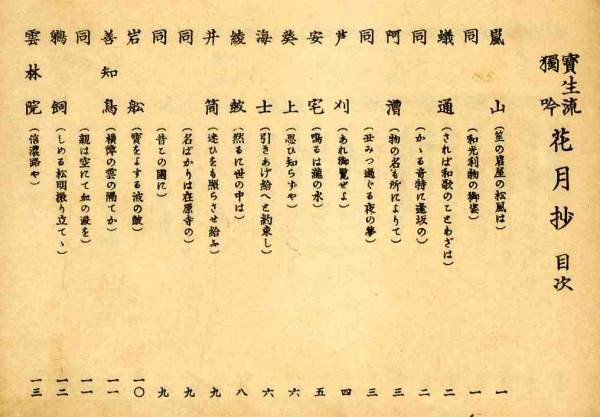 寶生流獨吟 花月抄 目次
嵐山 (笙の岩屋の松風は) 一
同 (和光利物の御姿) 一
蟻通 (されば和歌のことわざは) 二
同 (かゝる奇特に逢坂の) 二
阿漕 (物の名も所によりて) 三
同 (丑みつ過ぐる夜の夢) 三
芦刈 (あれ御覽ぜよ) 四
安宅 (鳴るは瀧の水) 五
葵上 (思ひ知らずや) 六
海士 (引きあげ給へと約束し) 六
綾皷 (然るに世の中は) 八
井筒 (迷ひをも照らさせ給ふ) 九
同 (名ばかりは在原寺の) 九
同 (昔この國に) 九
岩船 (寶をよする波の皷) 一〇
善知鳥 (横障の雲の隔てか) 一一
同 (親は空にて血の涙を) 一一
鵜飼 (しめる松明振り立てゝ) 一二
雲林院 (信濃路や) 一三